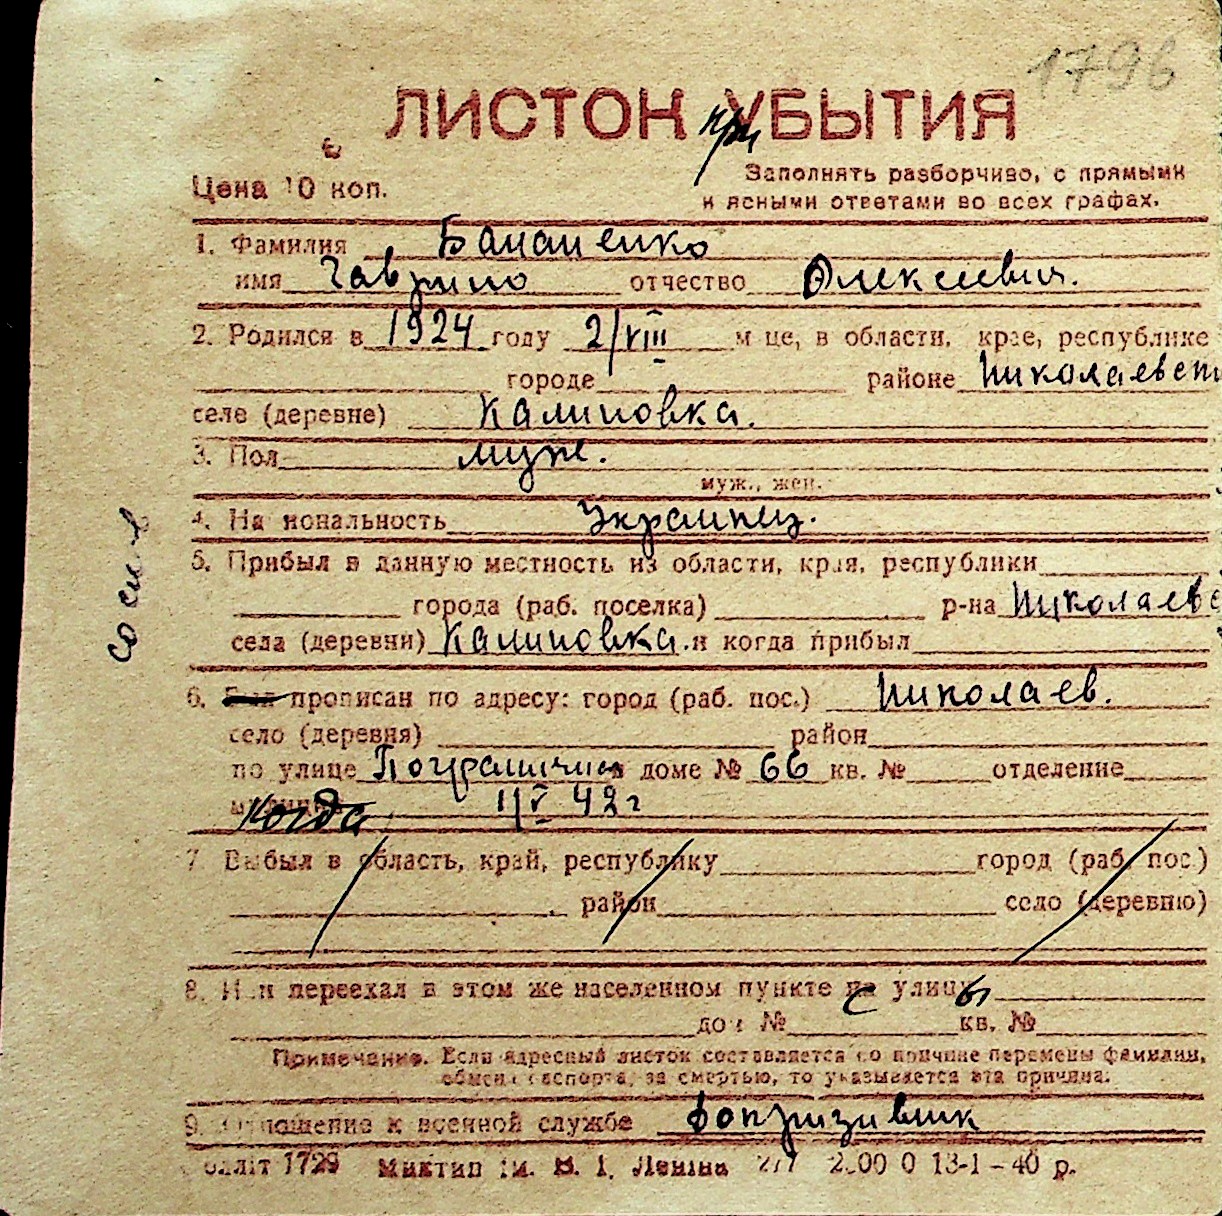 1796
ЛИСТОК при УБЫТИЯ
Цена 10 коп.
Заполнять разборчиво, с прямыми
и ясными ответами во всех графах.
1. Фамилия Бапаненко
имя Гаврило отчество Алексеевич.
2. Родился в 1924 году 2/VIII м-це, в области, крае, республике
городе районе Николаевск
селе (деревне) Калиновка.
3. Пол муж.
муж., жен.
4. Национальность Украинец.
5. Прибыл в данную местность из области, края, республики
города (раб. поселка) р-на Николаевс
села (деревни) Калиновка. и когда прибыл
6. Был прописан по адресу: город (раб. пос.) Николаев.
село (деревня) район
по улице Погранична доме № 66 кв. № отделение
когда 1/V 42 г
7 Выбыл в область, край, республику город (раб. пос.)
район село (деревню)
8. Или переехал в этом же населенном пункте с улицы
дом № кв. №
Примечание. Если адресный листок составляется по причине перемены фамилии,
обмена паспорта, за смертью, то указывается эта причина.
9. Отношение к военной службе допризивник
1729 Миктип Ім. В. І. Леніна 277 13-1-40 р.